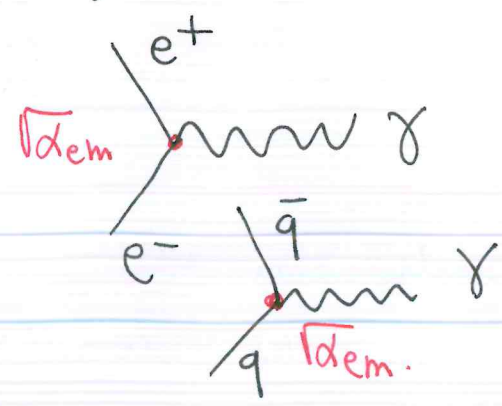 e+
√αem γ
e−
q̄ γ
q √αem.